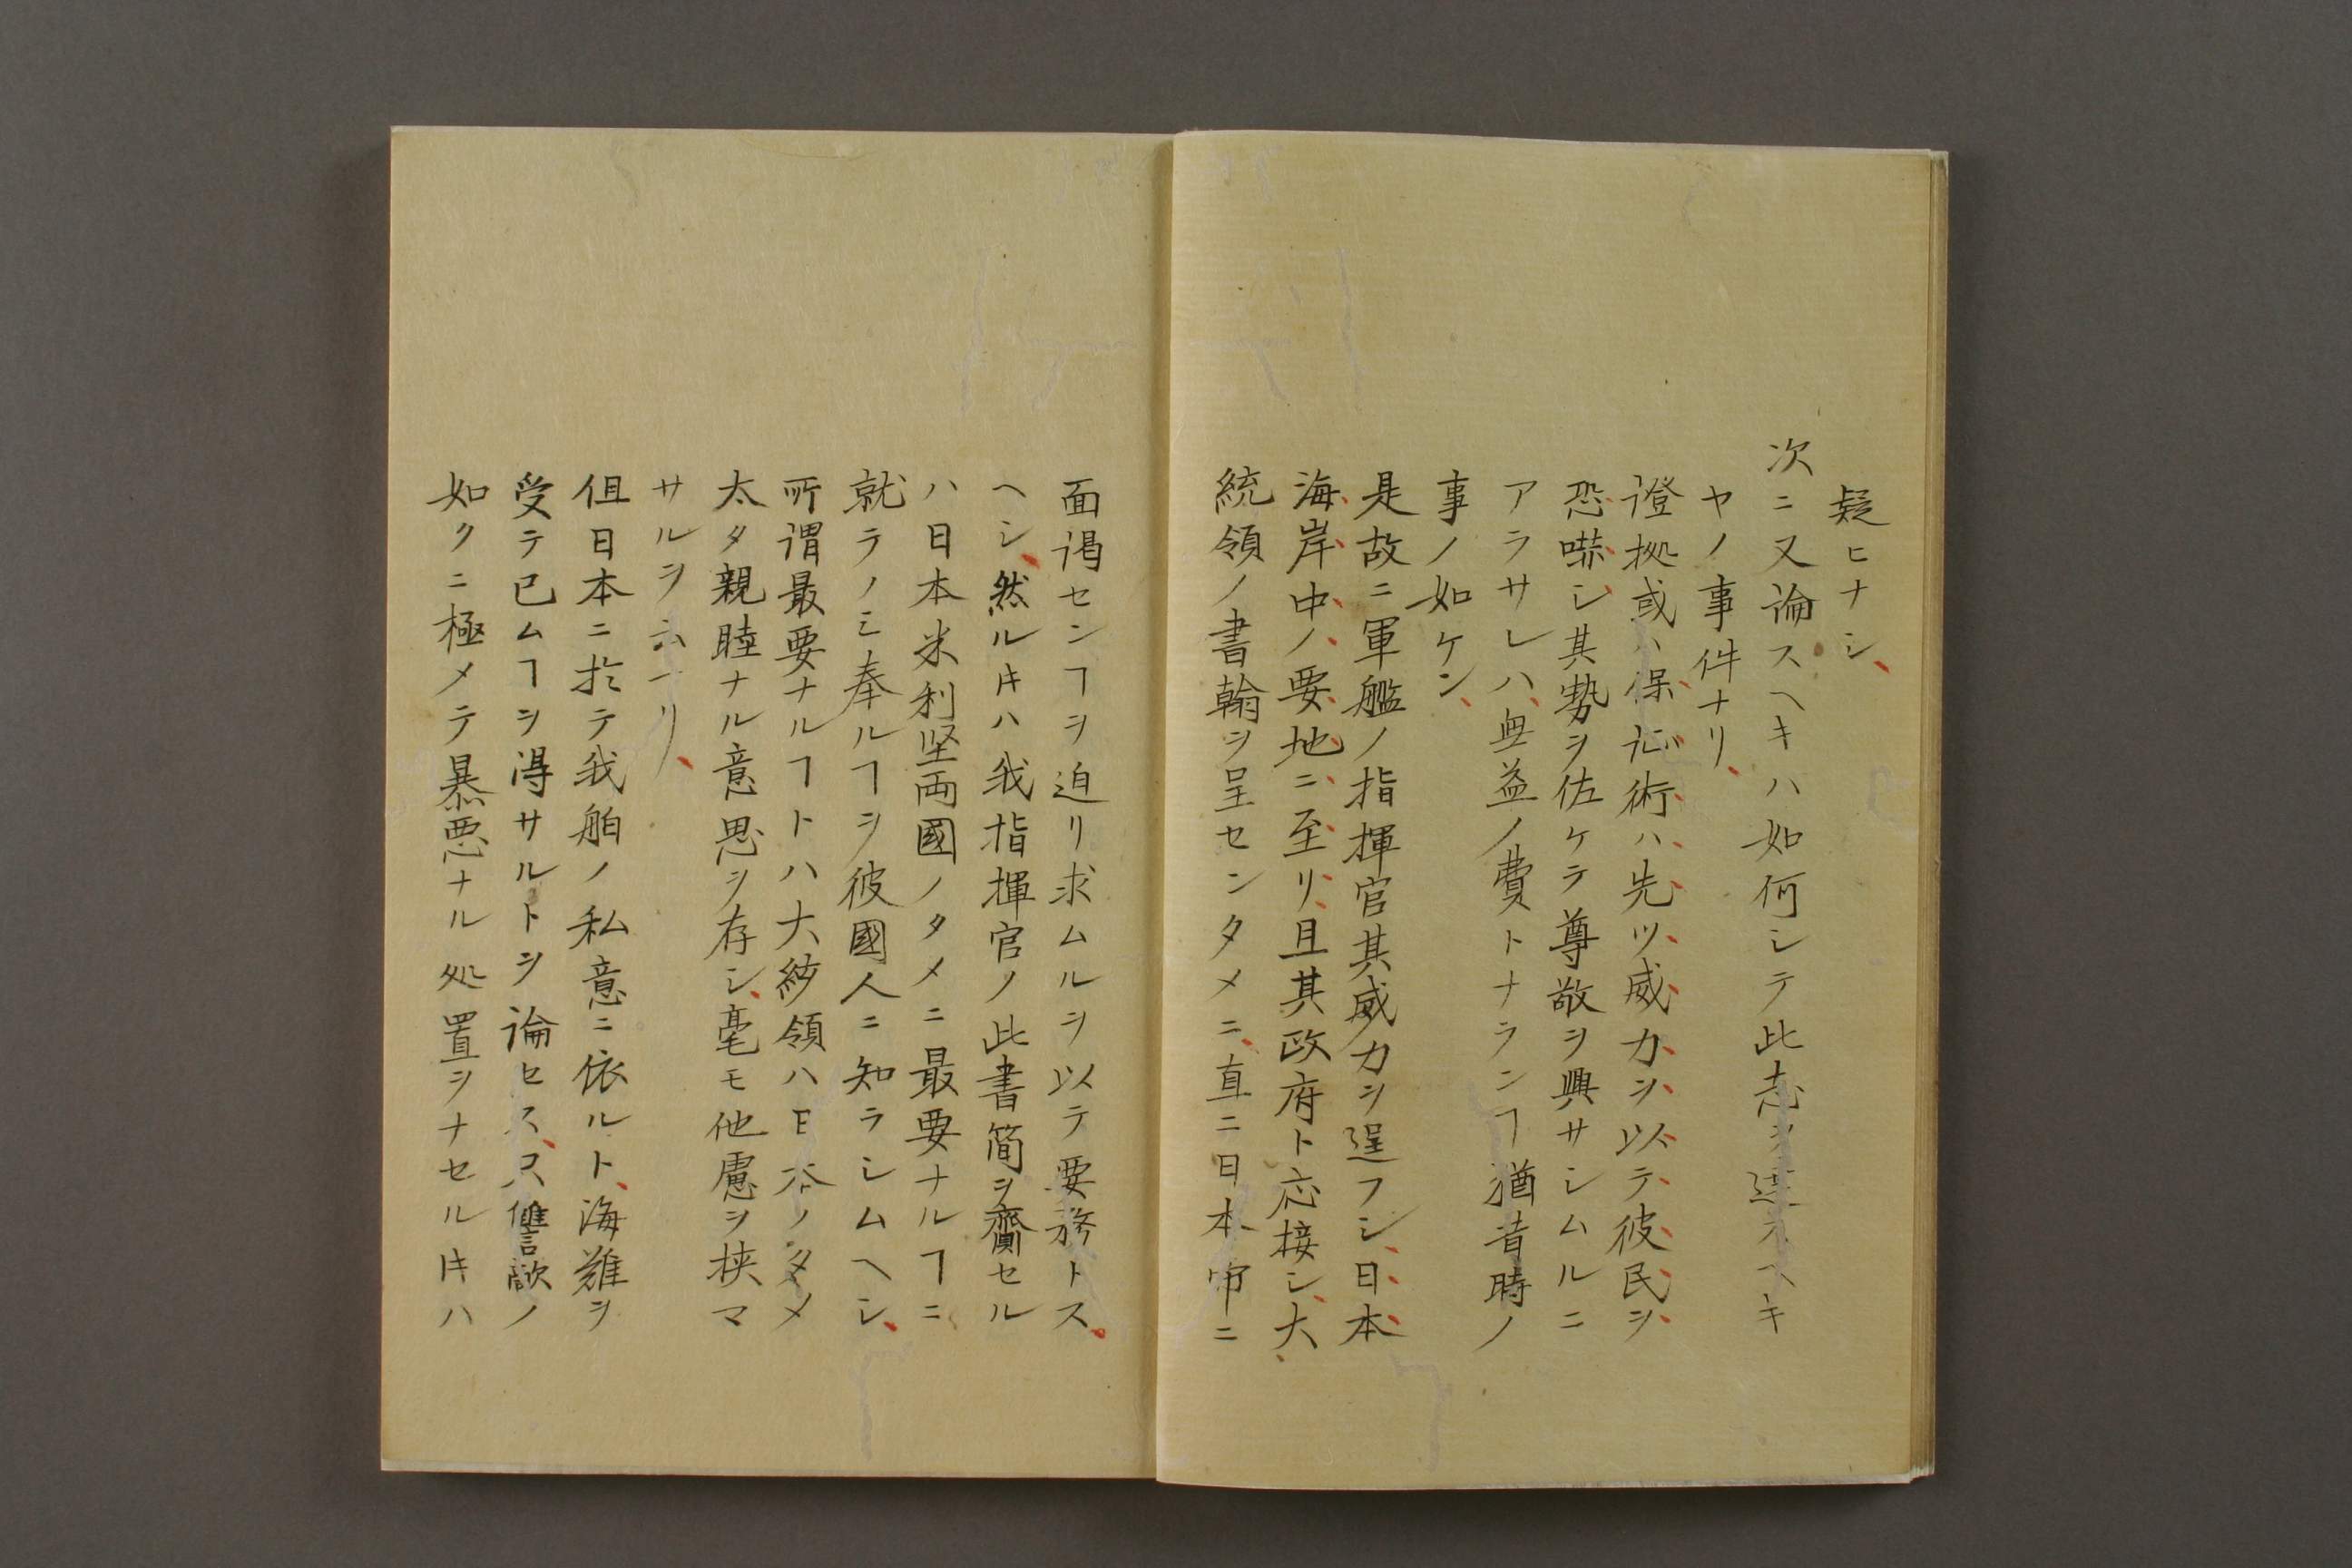 疑ヒナシ、
次ニ又論スヘキハ如何シテ此志ヲ達スヘキ
ヤノ事件ナリ、
證拠或ハ保証術ハ先ツ威力ヲ以テ彼民ヲ
恐嚇シ其勢ヲ佐ケテ尊敬ヲ興サシムルニ
アラサレハ、無益ノ費トナランヿ猶昔時ノ
事ノ如ケン、
是故ニ軍艦ノ指揮官其威力ヲ逞フシ、日本
海岸中ノ要地ニ至リ、且其政府ト応接シ、大
統領ノ書翰ヲ呈センタメニ、直ニ日本帝ニ
面謁センヿヲ迫リ求ムルヲ以テ要務トス。
ヘシ、然ルキハ我指揮官ノ此書簡ヲ齎セル
ハ日本米利堅両國ノタメニ最要ナルヿニ
就テノミ奉ルヿヲ彼國人ニ知ラシムヘシ、
所謂最要ナルヿトハ大統領ハ日本ノタメ
太タ親睦ナル意思ヲ存シ、毫モ他慮ヲ挟マ
サルヲ云ナリ、
但日本ニ於テ我舶ノ私意ニ依ルト、海難ヲ
受テ已ムヿヲ得サルトヲ論セス、只讎敵ノ
如クニ極メテ暴悪ナル処置ヲナセルキハ